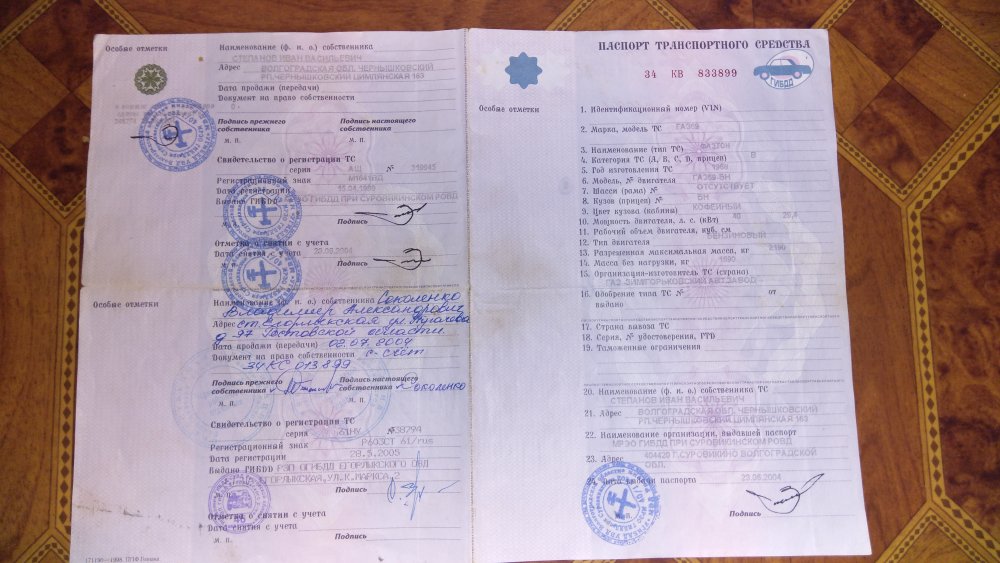 Особые отметки
Наименование (ф. и. о.) собственника
СТЕПАНОВ ИВАН ВАСИЛЬЕВИЧ
Адрес ВОЛГОГРАДСКАЯ ОБЛ. ЧЕРНЫШКОВСКИЙ
РП.ЧЕРНЫШКОВСКИЙ ЦИМЛЯНСКАЯ 163
Дата продажи (передачи)
Документ на право собственности
Подпись прежнего собственника
Подпись настоящего собственника
М. П. М. П.
Свидетельство о регистрации ТС
серия АШ № 319045
Регистрационный знак
Дата регистрации 15.04.1989
Выдано ГИБДД ГИБДД ПРИ СУРОВИКИНСКОМ РОВД
Подпись
Отметка о снятии с учета
Дата снятия с учета 23.06.2004
М. П.
Подпись
Особые отметки
Наименование (ф. и. о.) собственника Соколенко
Владимир Александрович
Адрес ст. Егорлыкская ул.
д-97 Ростовской области
Дата продажи (передачи) 02.07.2004
Документ на право собственности с-счет
34КС 013899
Подпись прежнего собственника
Подпись настоящего собственника Соколенко
М. П. М. П.
Свидетельство о регистрации ТС
серия 61НУ № 38794
Регистрационный знак Р603СТ 61/rus
Дата регистрации 28.5.2005
Выдано ГИБДД РЭП ОГИБДД ЕГОРЛЫКСКОГО ОВД
ЕГОРЛЫКСКАЯ, УЛ.К.МАРКСА,2
М. П.
Подпись
Отметка о снятии с учета
Дата снятия с учета
М. П.
Подпись
ПАСПОРТ ТРАНСПОРТНОГО СРЕДСТВА
34 КВ 833899
ГИБДД
Особые отметки
1. Идентификационный номер (VIN)
2. Марка, модель ТС ГАЗ69
3. Наименование (тип ТС) ФАЭТОН
4. Категория ТС (А, В, С, D, прицеп) В
5. Год изготовления ТС 1968
6. Модель, № двигателя ГАЗ69-БН
7. Шасси (рама) № ОТСУТСТВУЕТ
8. Кузов (прицеп) № БН
9. Цвет кузова (кабины) КОФЕЙНЫЙ
10. Мощность двигателя, л. с. (кВт) 40 29,4
11. Рабочий объем двигателя, куб. см
12. Тип двигателя БЕНЗИНОВЫЙ
13. Разрешенная максимальная масса, кг 2190
14. Масса без нагрузки, кг
15. Организация-изготовитель ТС (страна)
ГАЗ-ЗИМГОРЬКОВСКИЙ АВТ.ЗАВОД
16. Одобрение типа ТС № от
выдано
17. Страна вывоза ТС
18. Серия, № удостоверения, ГТД
19. Таможенные ограничения
20. Наименование (ф. и. о.) собственника ТС
СТЕПАНОВ ИВАН ВАСИЛЬЕВИЧ
21. Адрес ВОЛГОГРАДСКАЯ ОБЛ. ЧЕРНЫШКОВСКИЙ
РП.ЧЕРНЫШКОВСКИЙ ЦИМЛЯНСКАЯ 163
22. Наименование организации, выдавшей паспорт
МРЭО ГИБДД ПРИ СУРОВИКИНСКОМ РОВД
23. Адрес 404420 Г.СУРОВИКИНО ВОЛГОГРАДСКОЙ
ОБЛ.
24. Дата выдачи паспорта 23.06.2004
М. П.
Подпись